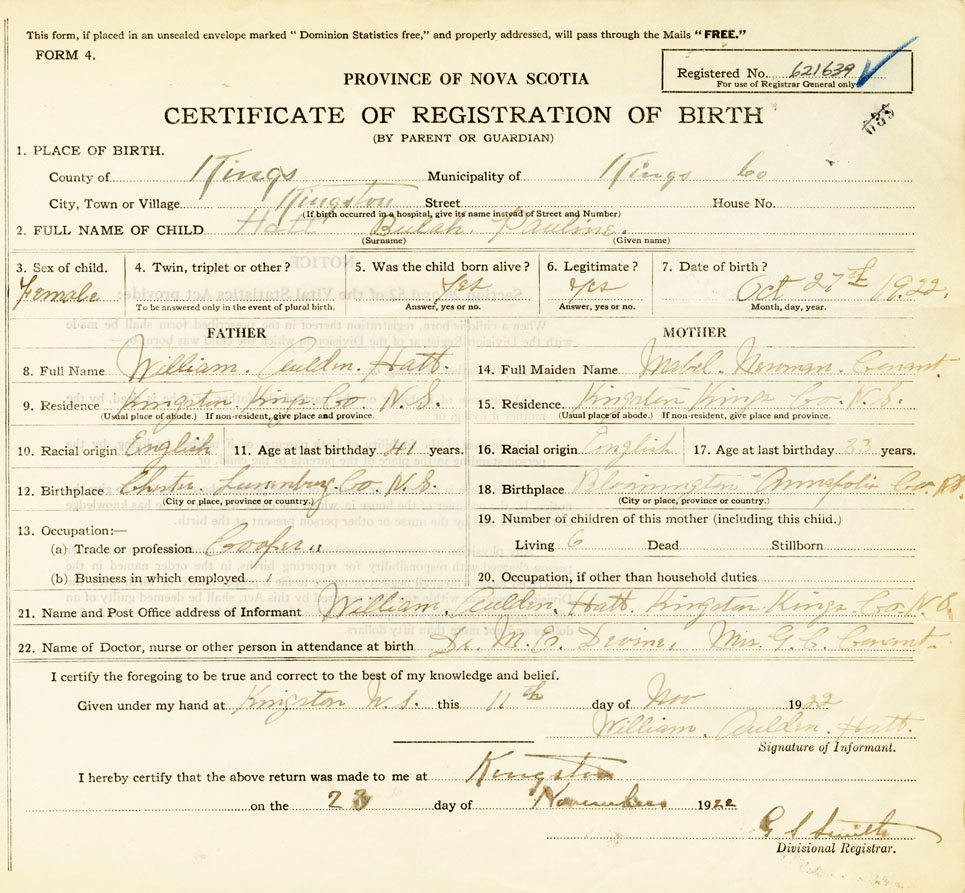 This form, if placed in an unsealed envelope marked "Dominion Statistics free," and properly addressed, will pass through the Mails "FREE."
FORM 4.
Registered No. 621639
For use of Registrar General only
PROVINCE OF NOVA SCOTIA
CERTIFICATE OF REGISTRATION OF BIRTH
(BY PARENT OR GUARDIAN)
1. PLACE OF BIRTH.
County of Kings Municipality of Kings Co
City, Town or Village Kingston Street House No.
(If birth occurred in a hospital, give its name instead of Street and Number)
2. FULL NAME OF CHILD Hatt Bulah Pauline.
(Surname) (Given name)
3. Sex of child. 4. Twin, triplet or other? 5. Was the child born alive? 6. Legitimate? 7. Date of birth?
Female Yes Yes Oct 27th 1922.
To be answered only in the event of plural birth. Answer, yes or no. Answer, yes or no. Month, day, year.
FATHER MOTHER
8. Full Name William. Aulden. Hatt. 14. Full Maiden Name Mabel. Newman.
9. Residence Kingston Kings Co. N.S. 15. Residence. Kingston Kings Co. N.S.
(Usual place of abode.) If non-resident, give place and province. (Usual place of abode.) If non-resident, give place and province.
10. Racial origin English 11. Age at last birthday 41 years. 16. Racial origin English 17. Age at last birthday 33 years.
12. Birthplace Chester Lunenburg Co. N.S. 18. Birthplace Bloomington Annapolis Co. NS
(City or place, province or country.) (City or place, province or country.)
13. Occupation:— 19. Number of children of this mother (including this child.)
(a) Trade or profession Cooper Living 6 Dead Stillborn
(b) Business in which employed 20. Occupation, if other than household duties
21. Name and Post Office address of Informant William. Aulden. Hatt. Kingston. Kings. Co. N.S.
22. Name of Doctor, nurse or other person in attendance at birth Dr. M. E. Devine, Mrs. G. C.
I certify the foregoing to be true and correct to the best of my knowledge and belief.
Given under my hand at Kingston N.S. this 11th day of Nov 1922
William. Aulden. Hatt.
Signature of Informant.
I hereby certify that the above return was made to me at Kingston
on the 23 day of November 1922
G S Smith
Divisional Registrar.